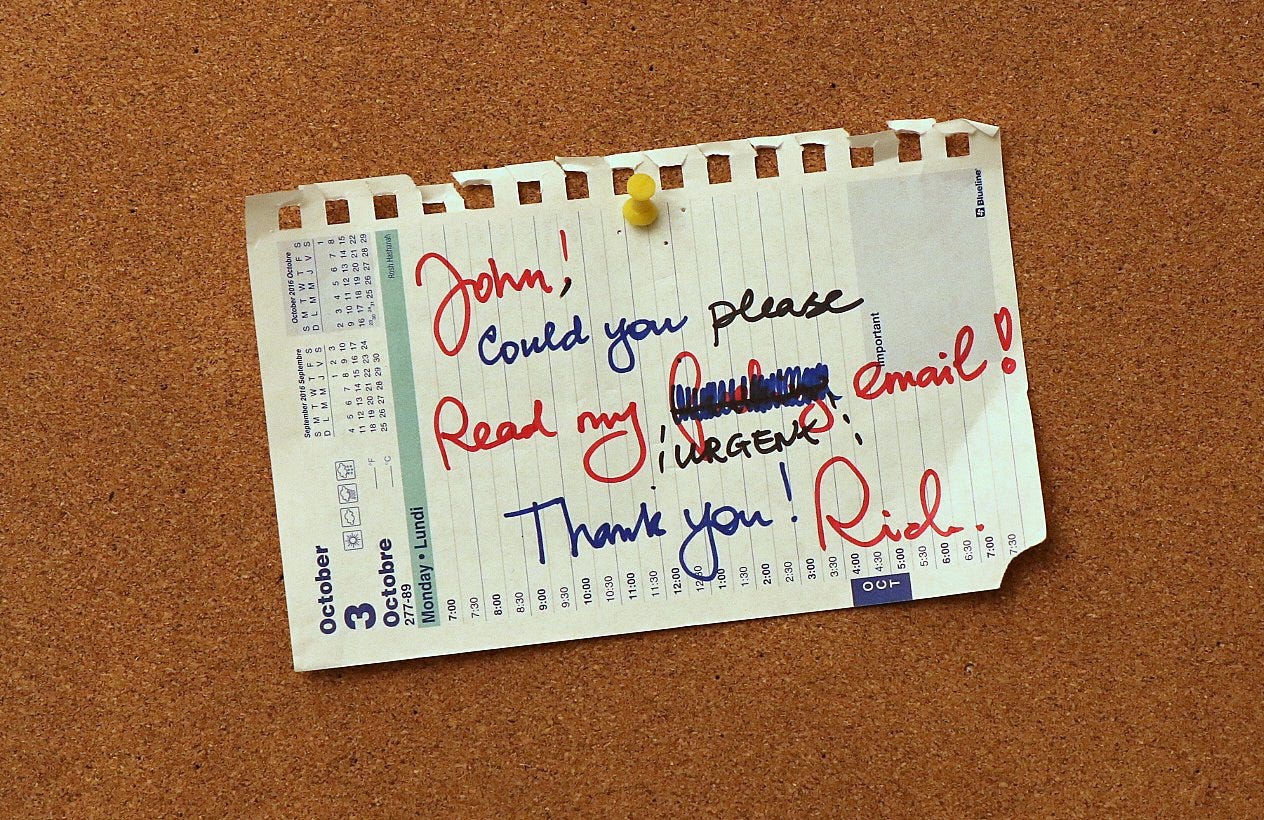 John!
Could you please
Read my email!
¡URGENT!
Thank you! Rick.
October
3
Octobre
277-89
Monday • Lundi
°F
°C
September 2016 Septembre
S M T W T F S
D L M M J V S
1 2 3
4 5 6 7 8 9 10
11 12 13 14 15 16 17
18 19 20 21 22 23 24
25 26 27 28 29 30
October 2016 Octobre
S M T W T F S
D L M M J V S
1
2 3 4 5 6 7 8
9 10 11 12 13 14 15
16 17 18 19 20 21 22
23/30 24/31 25 26 27 28 29
Rosh Hashanah
7:00
7:30
8:00
8:30
9:00
9:30
10:00
10:30
11:00
11:30
12:00
12:30
1:00
1:30
2:00
2:30
3:00
3:30
4:00
4:30
5:00
5:30
6:00
6:30
7:00
7:30
OCT
Important
Blueline